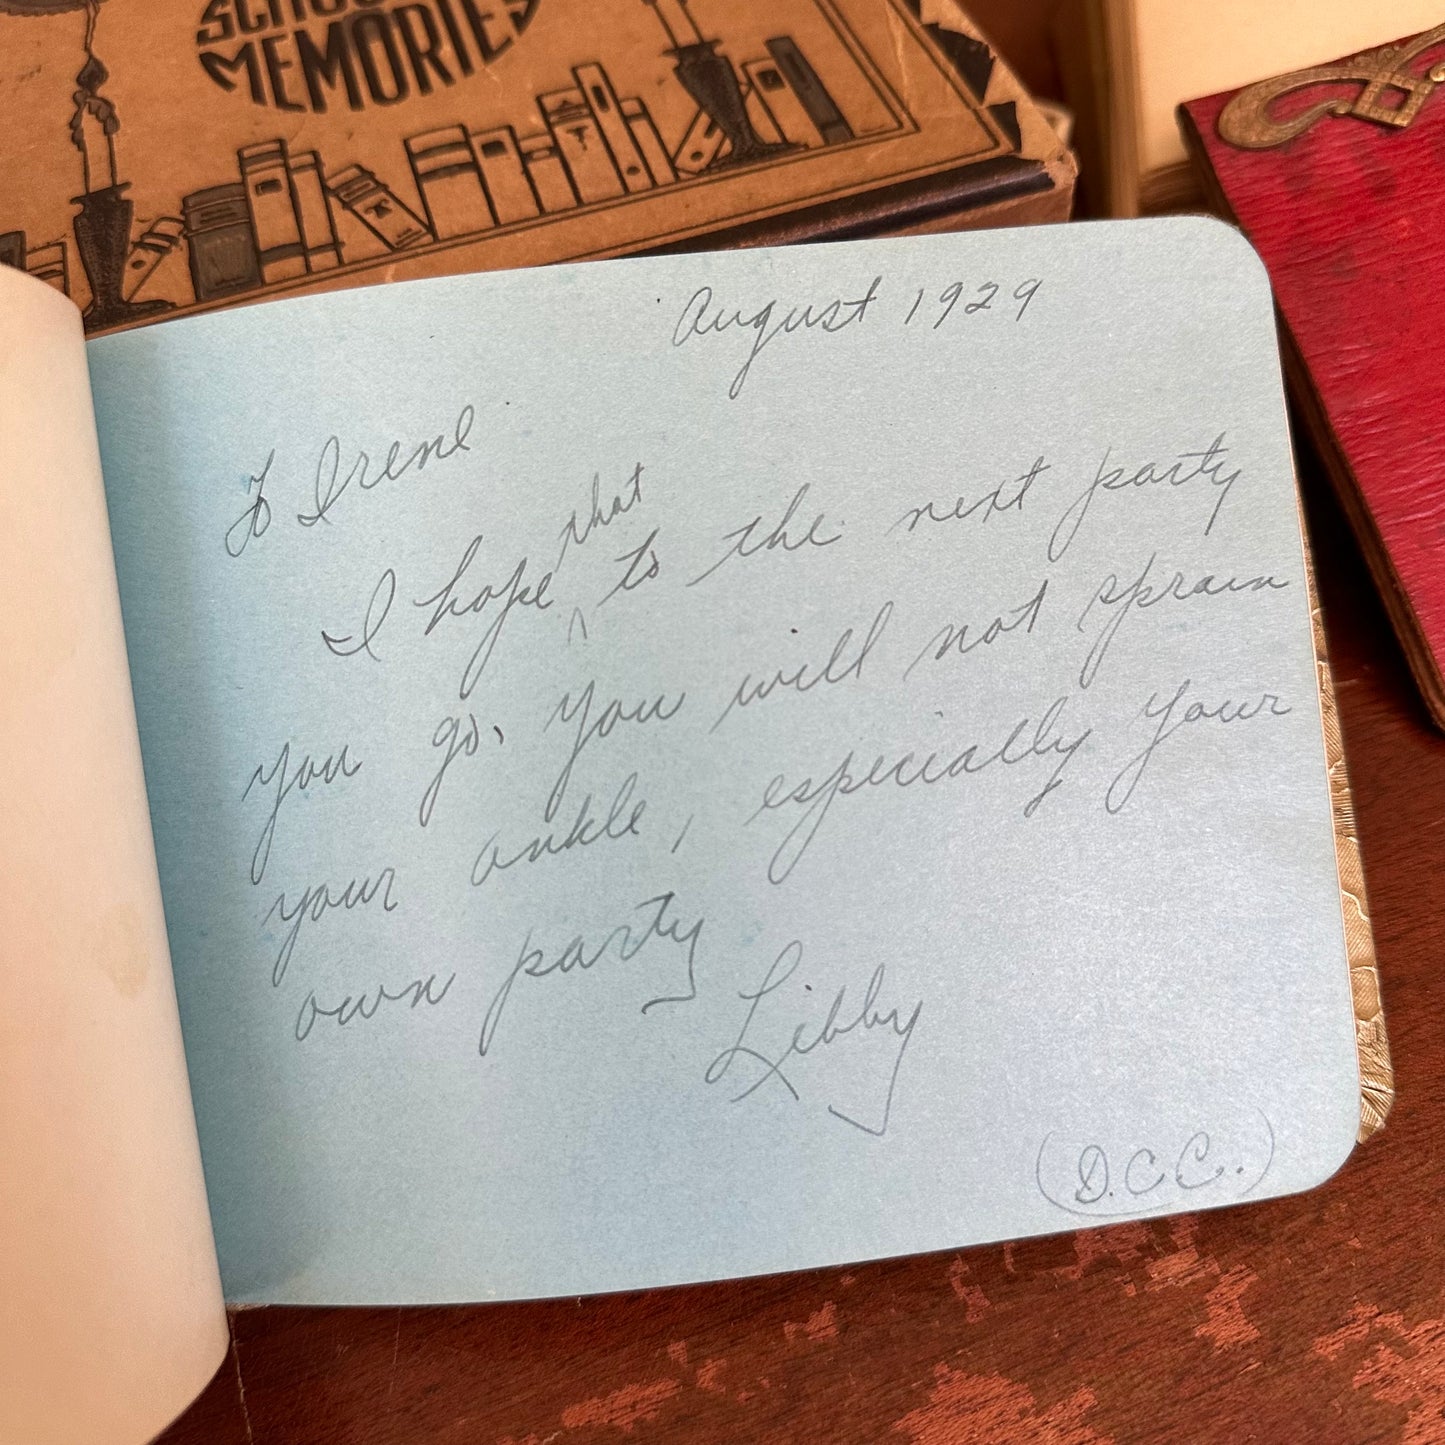 SCHOOL
MEMORIES
August 1929
To Irene
I hope that to the next party
you go, you will not sprain
your ankle, especially your
own party
Libby
(D.C.C.)